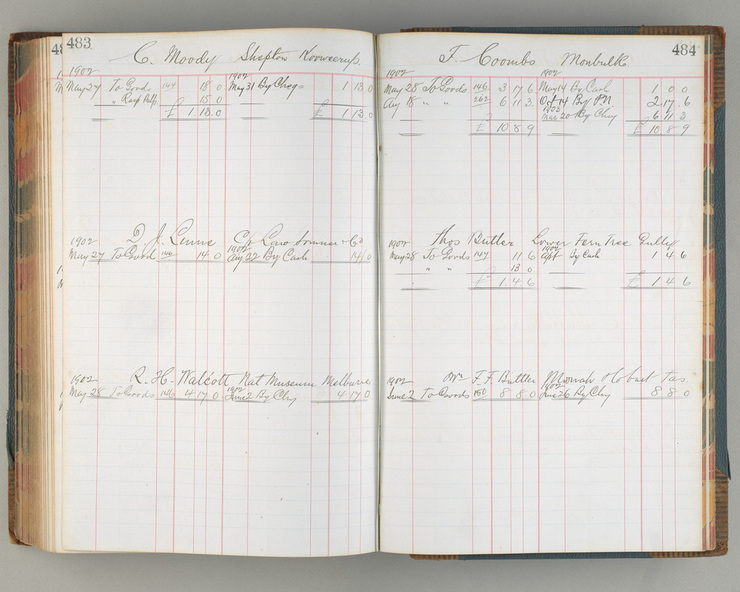 483
C. Moody Kooweerup
1902 1902
May 27 To Goods 147 18 0 May 31 By Cheq 1 13 0
" 15 0
£ 1 13 0 £ 1 13 0
1902 1902
May 27 To Goods 14 0 Aug 22 By Cash 14 0
R. H. Walcott Nat Museum Melbourne
1902 1902
May 28 To Goods 4 17 0 June 2 By Chq 4 17 0
484
T. Coombs Monbulk
1902 1902
May 28 To Goods 146 3 17 6 May 14 By Cash 1 0 0
Aug 18 " " 262 6 11 3 Oct 14 By PN 2 17 6
1902
20 By Chq 6 11 3
£ 10 8 9 £ 10 8 9
Thos Butler Lower Fern Tree Gully
1902 1902
May 28 To Goods 147 11 6 By Cash 1 4 6
" " 13 0
£ 1 4 6 £ 1 4 6
Mr F. F. Butler Hobart Tas
1902 1902
June 2 To Goods 150 8 8 0 June 26 By Chq 8 8 0